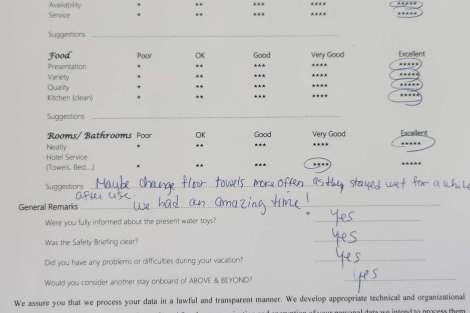 Availability * ** *** **** *****
Service * ** *** **** *****
Suggestions
Food Poor OK Good Very Good Excellent
Presentation * ** *** **** *****
Variety * ** *** **** *****
Quality * ** *** **** *****
Kitchen (clean) * ** *** **** *****
Suggestions
Rooms/ Bathrooms Poor OK Good Very Good Excellent
Neatly * ** *** **** *****
Hotel Service
(Towels, Bed...) * ** *** **** *****
Suggestions Maybe change floor towels more often as they stayed wet for a while
after use
General Remarks We had an amazing time!
Were you fully informed about the present water toys? Yes
Was the Safety Briefing clear? Yes
Did you have any problems or difficulties during your vacation? Yes
Would you consider another stay onboard of ABOVE & BEYOND? yes
We assure you that we process your data in a lawful and transparent manner. We develop appropriate technical and organizational
of your personal data we intend to process them